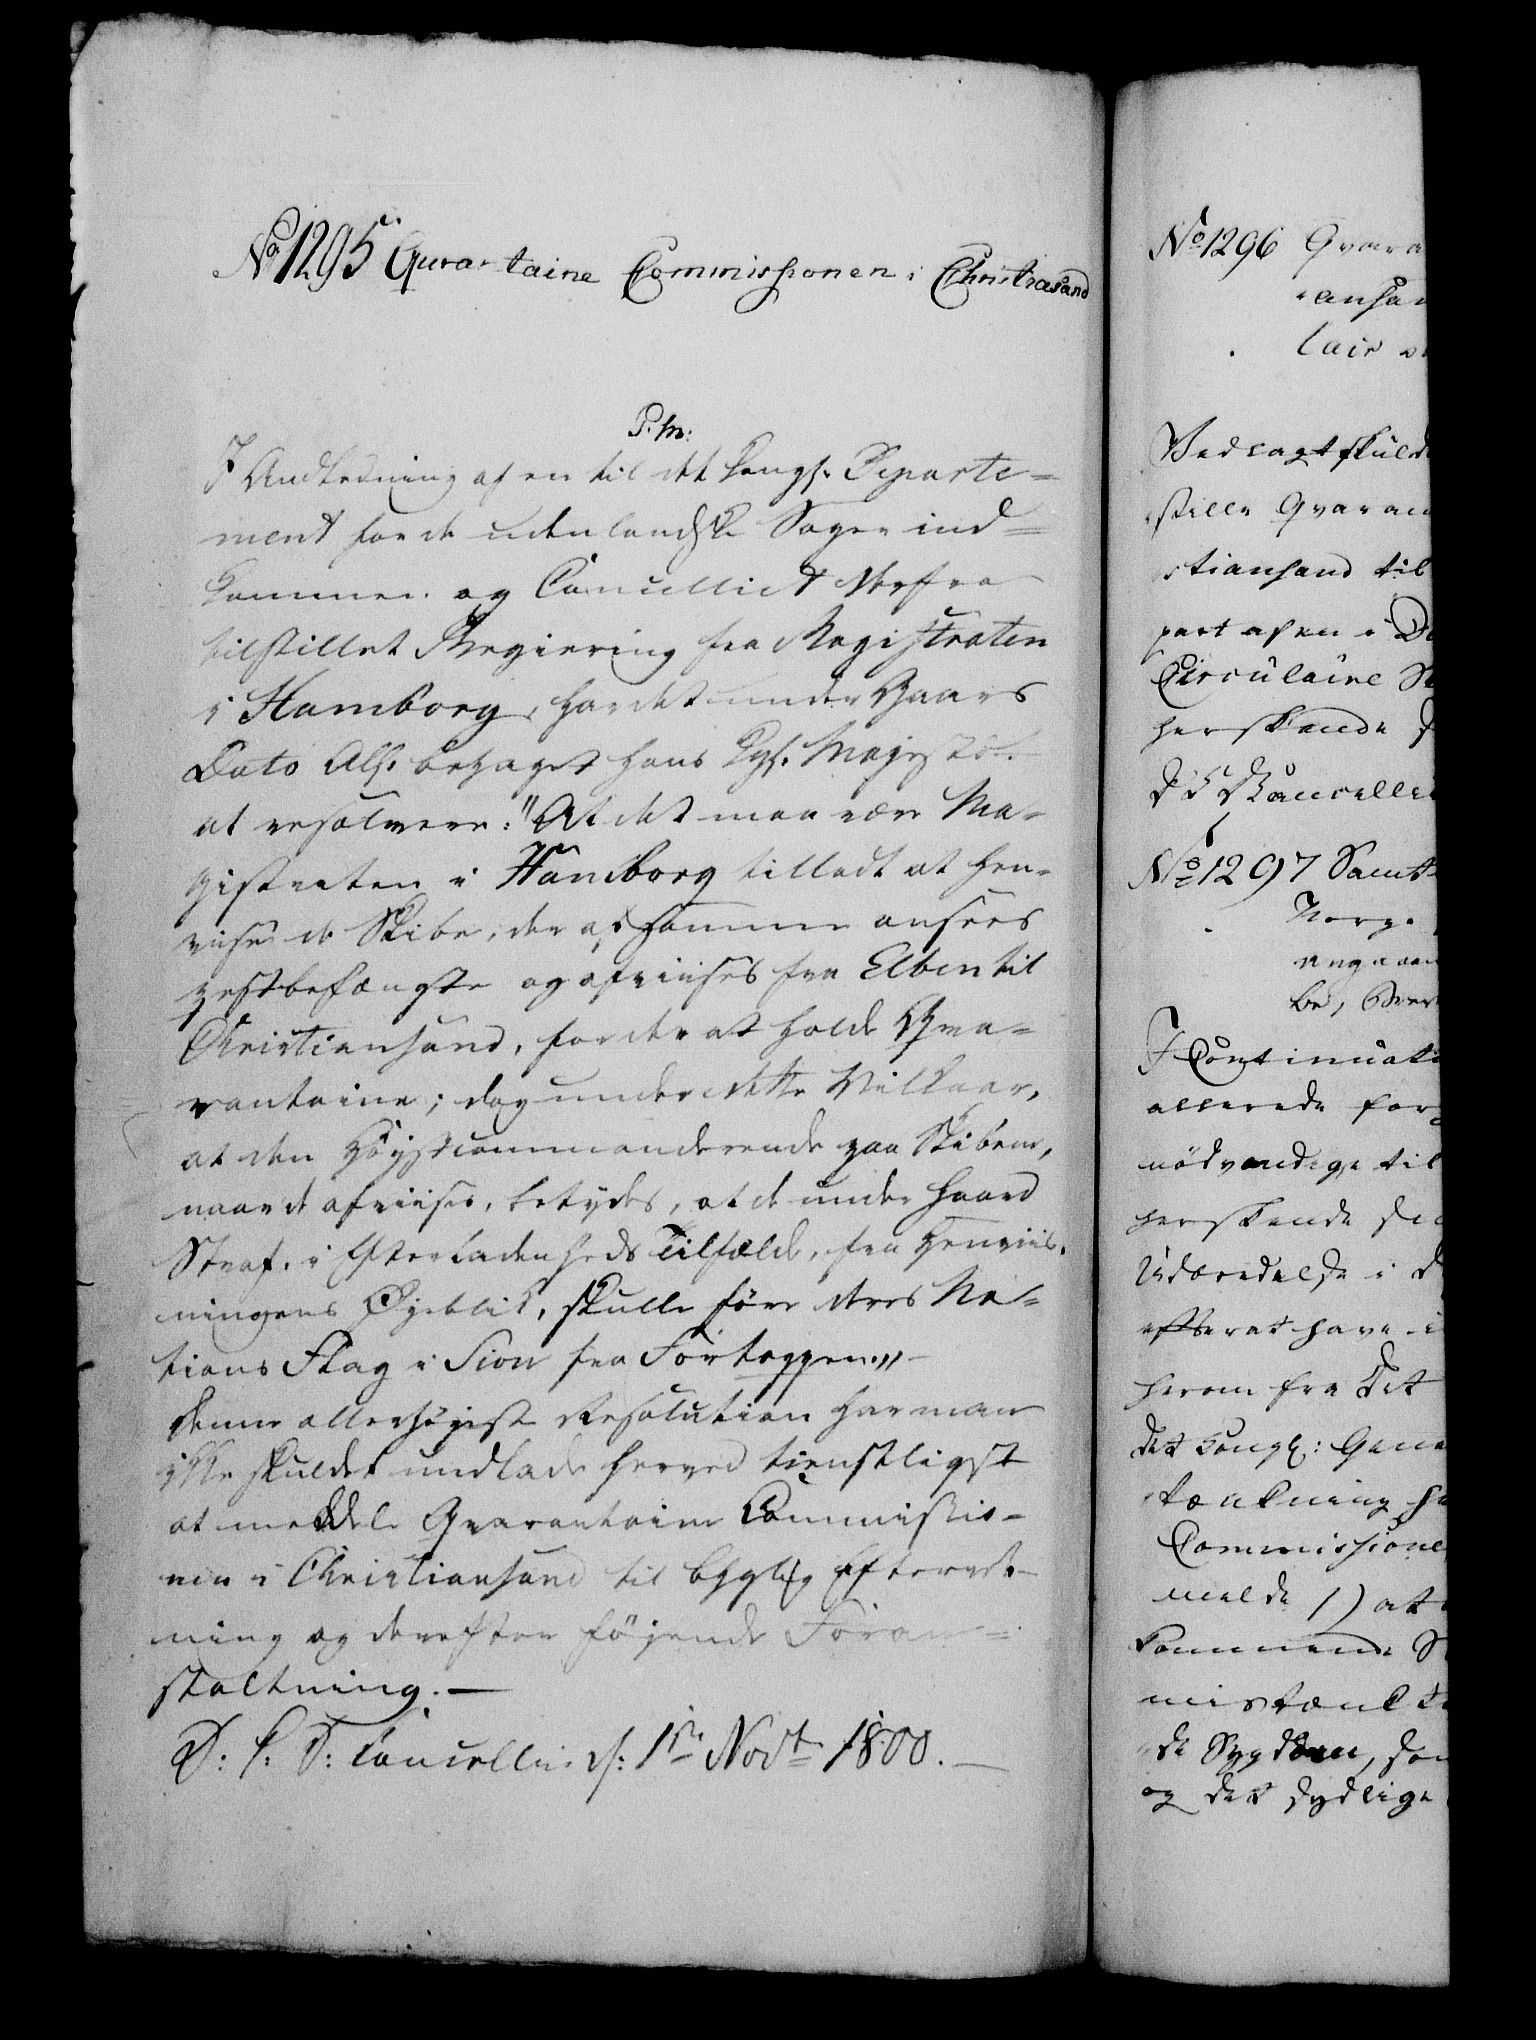 No 1295 Qvarantaine Commissionen i Christiasand
P. M:
I Andledning af en til det Kongl. Departe=
ment for de udenlandske Sager ind=
kommen og Cancelliet derfra
tilstillet Begiering fra Magistraten
i Hamborg, har det under Gaars
Dato Allr. behaget Hans Kgl. Majestæt
at resolvere: "At det maa være Ma-
gistraten i Hamborg tilladt at hen-
viise de Skibe, der af samme ansees
pestbefængte og afviises fra Elben til
Christiansand, for der at holde Qva=
rantaine; dog under dette Vilkaar,
at den Høystcommanderende paa Skibene,
naar de afviises, betydes, at de under haard
Straf, i Efterladenheds Tilfælde, fra Henviis-
ningens Øjeblik, skulle føre deres Na=
tions Flag i Siou fra Fortoppen."
Denne allerhøjeste Resolution har man
ikke skullet undlade herved tienstligst
at meddele Qvarantaine Commissio-
nen i Christiansand til behagelig Efterret-
ning og derefter føjende Foran=
staltning.—
D: K: D: Cancellie d: 1ste Novbr 1800.—
No 1296 Qvara
ansan
lair
Vedlagt skulde
stille Qvaran
stiansand til
part af en i D
Circulaire
herskende
D K D Cancellie
No 1297 Samt
Norge
I Continuati
allerede for
nödvendige til
herskende
Udbredelse i
efterat have
herom fra Det
det Kongl: Gene
tænkning
Commissione
melde 1) at
kommende
mistænk
de Sygdom,
og det sydlige